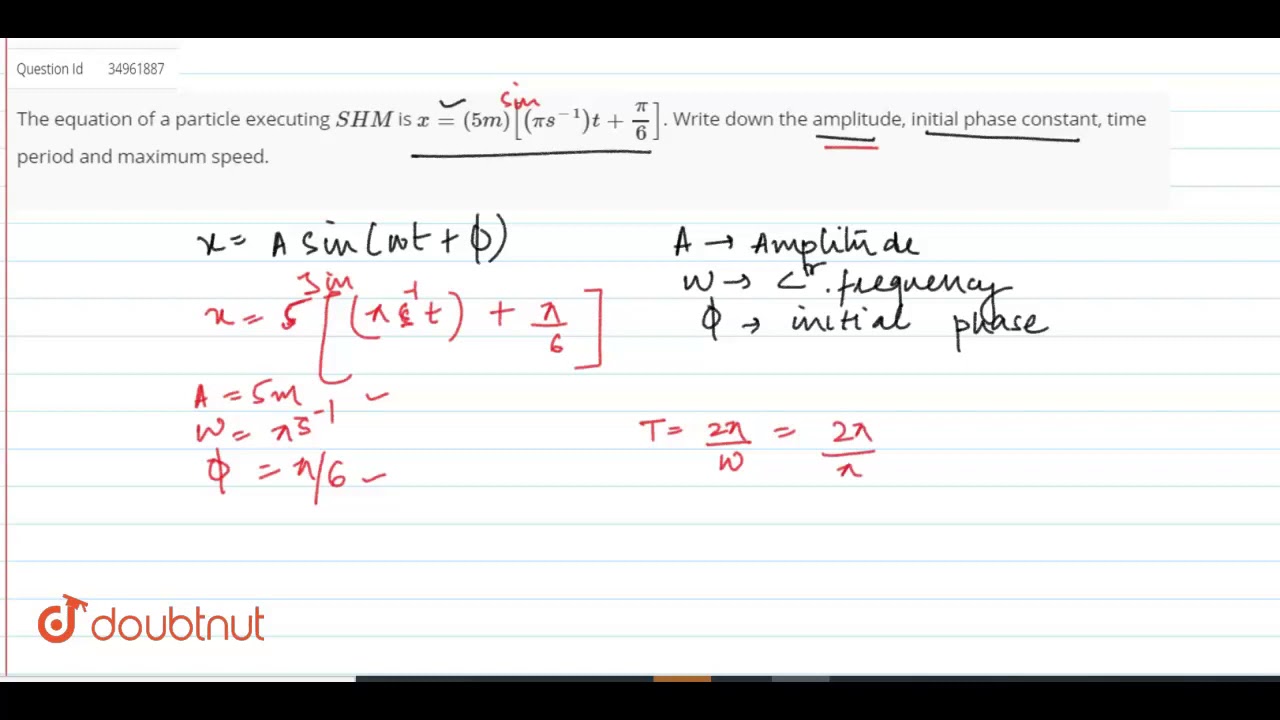 Question Id 34961887
sin
The equation of a particle executing SHM is x = (5m)[(πs⁻¹)t + π/6]. Write down the amplitude, initial phase constant, time
period and maximum speed.
x = A sin(ωt + ϕ)
A → Amplitude
ω → <ʳ. frequency
ϕ → initial phase
sin
x = 5[(π s⁻¹ t) + π/6]
A = 5m
ω = π s⁻¹
ϕ = π/6
T = 2π/ω = 2π/π
doubtnut